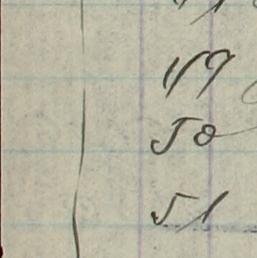 49
50
51